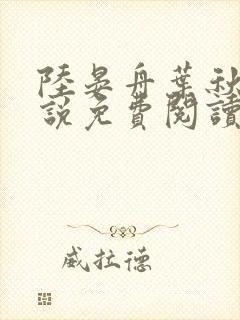 陸晏舟葉秋
說免費閱讀
威拉德